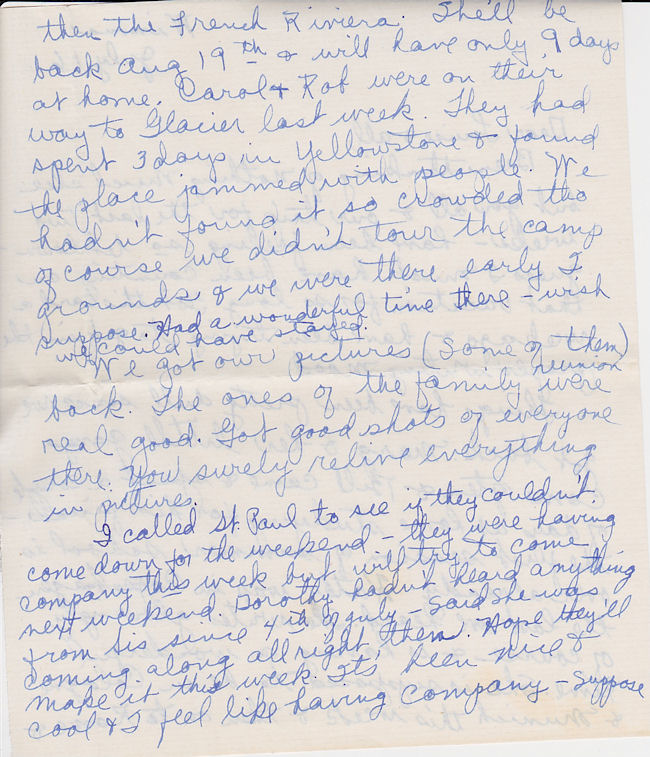 then the French Riviera. She'll be
back Aug 19th & will have only 9 days
at home. Carol & Rob were on their
way to Glacier last week. They had
spent 3 days in Yellowstone & found
the place jammed with people. We
hadn't found it so crowded tho
of course we didn't tour the camp
grounds & we were there early I
suppose. Had a wonderful time there - wish
we could have stayed.
We got our pictures (some of them)
back. The ones of the family reunion were
real good. Got good shots of everyone
there. You surely relive everything
in pictures.
I called St. Paul to see if they couldn't
come down for the weekend - they were having
company this week but will try to come
next weekend. Dorothy hadn't heard anything
from Sis since 4th of July - said she was
coming along all right then. Hope they'll
make it this week. It's been nice &
cool & I feel like having company - suppose